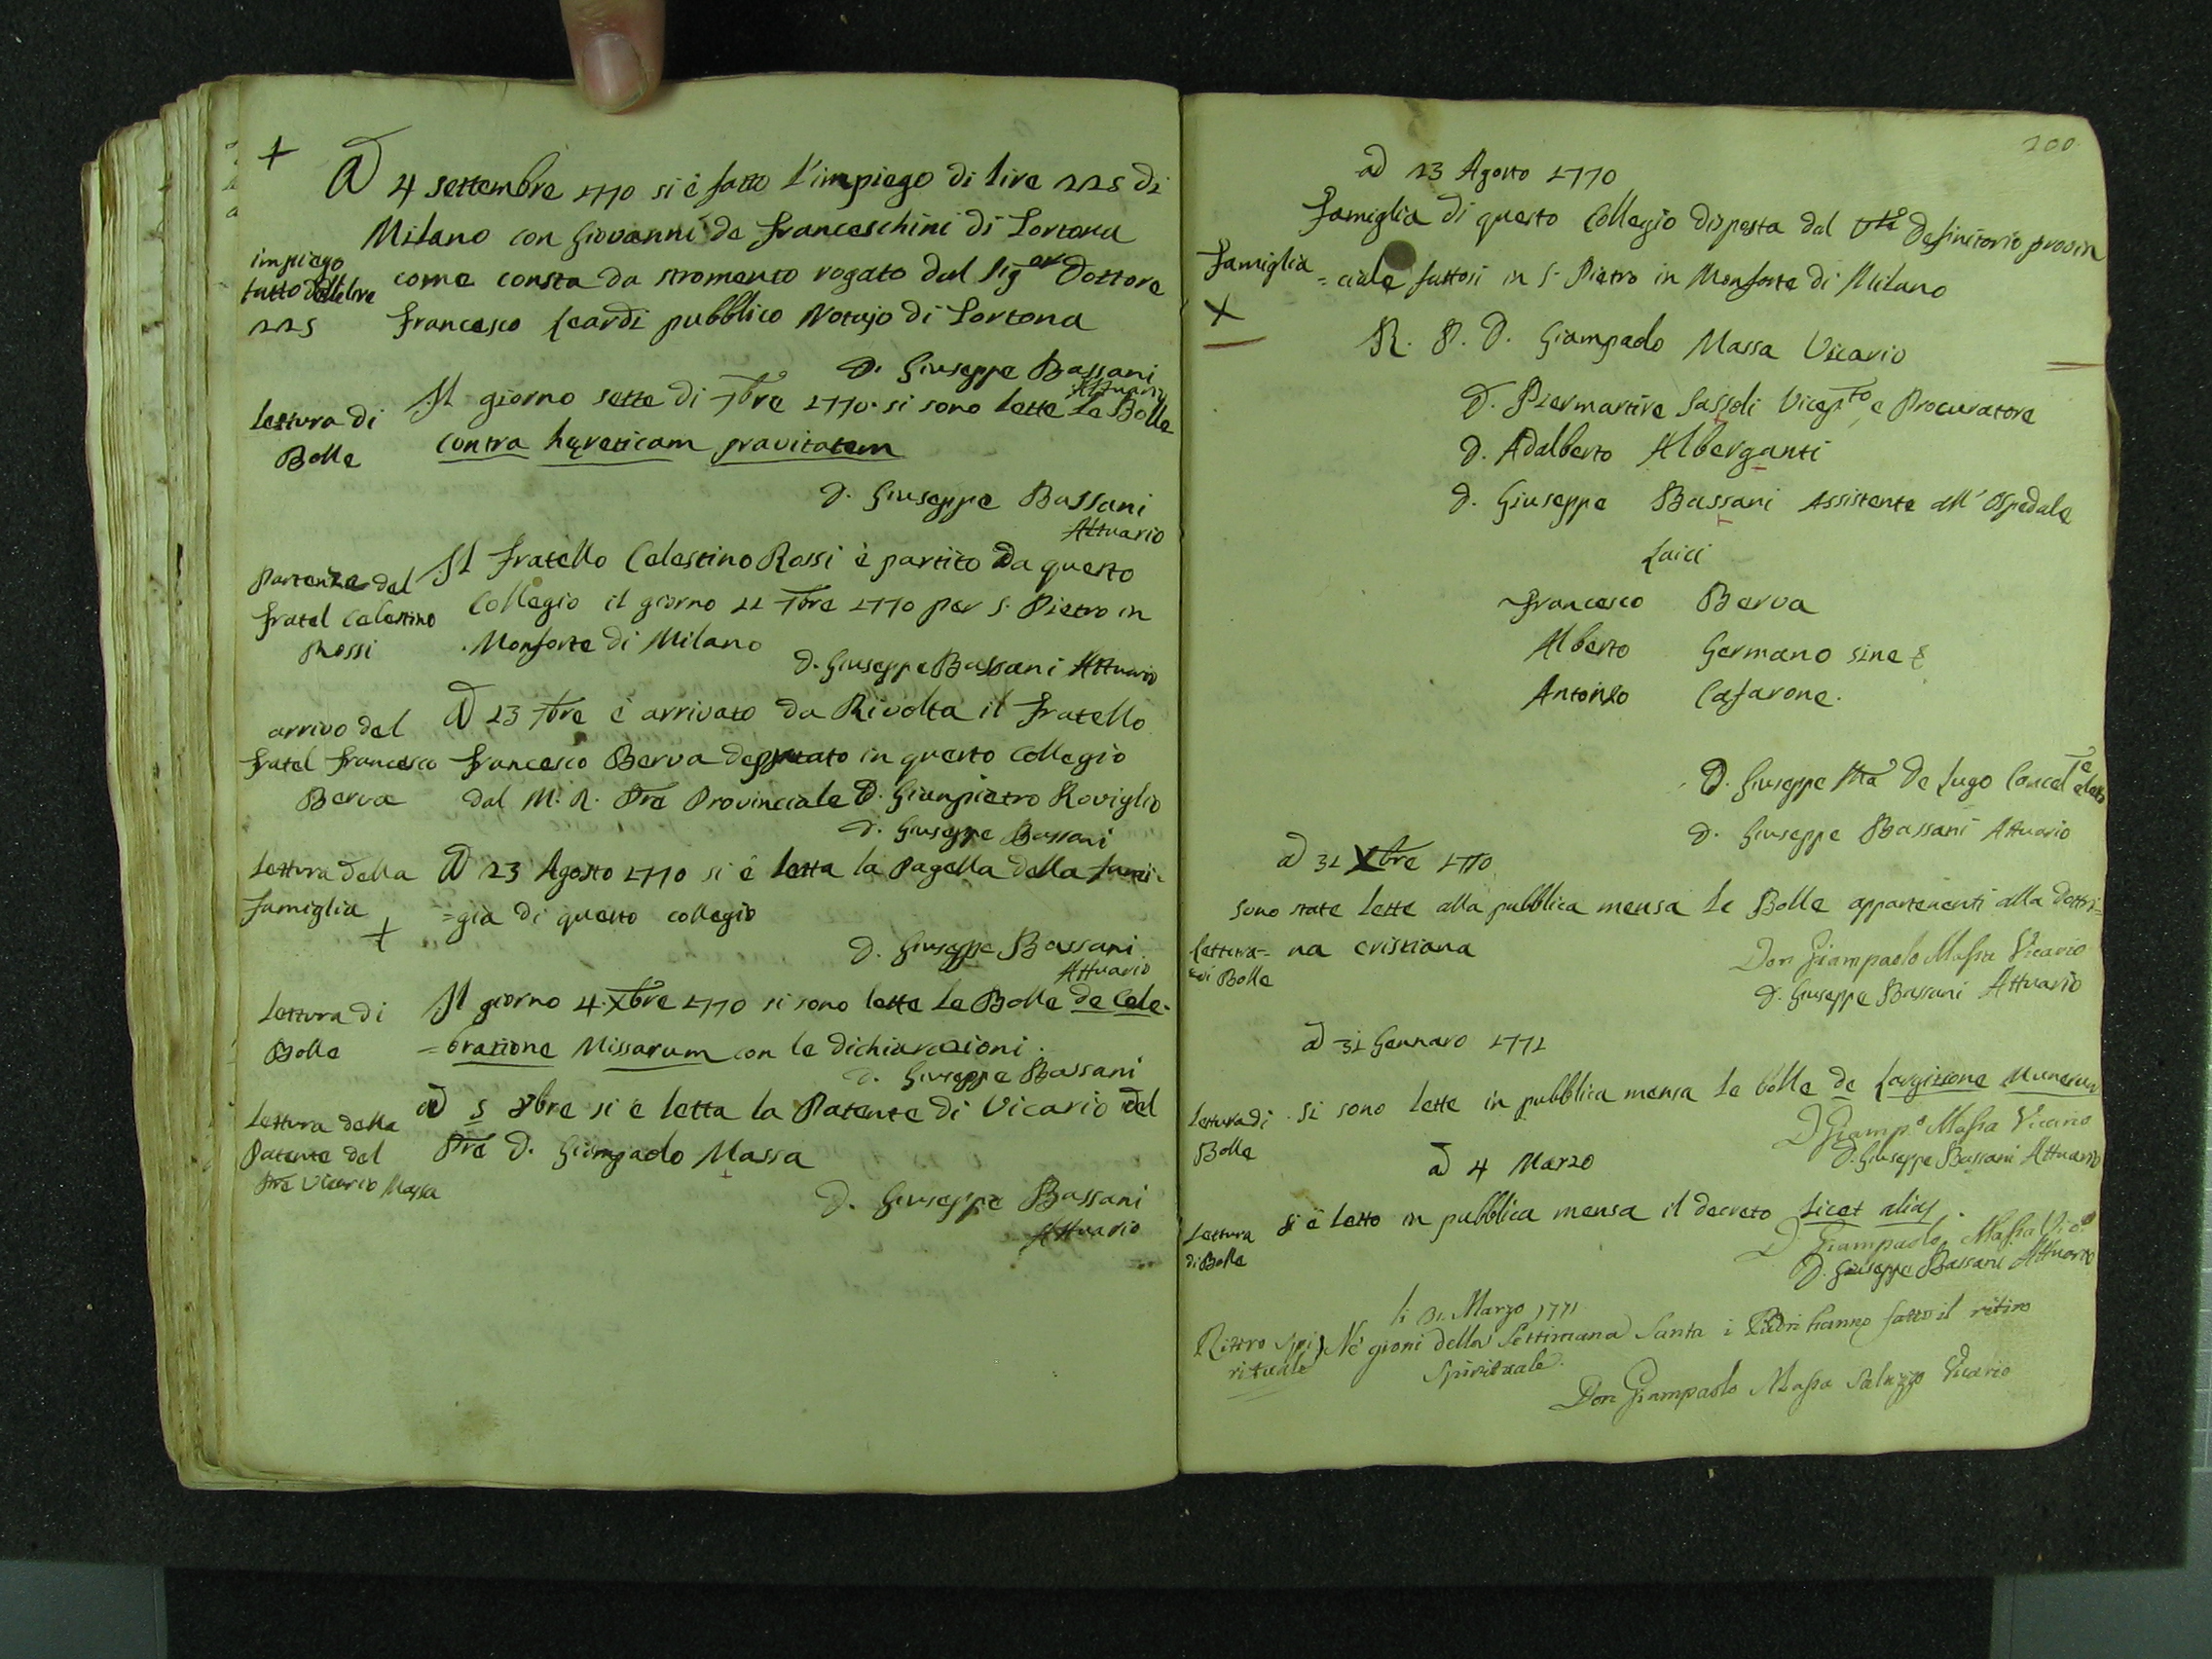 +
Ad 4 settembre 1770 si è fatto l'impiego di lire 225 di
Milano con Giovanni de Franceschini di Tortona
impiego
fatto delle lire
225
come consta da stromento rogato dal Sig.or Dottore
Francesco Leardi pubblico Notajo di Tortona
D. Giuseppe Bassani
Attuario
Lettura di
Bolle
Il giorno sette di 7bre 1770 si sono lette le Bolle
contra hęreticam pravitatem
D. Giuseppe Bassani
Attuario
Partenza del
fratel Celestino
Rossi
Il fratello Celestino Rossi è partito da questo
Collegio il giorno 11 7bre 1770 per S. Pietro in
Monforte di Milano
D. Giuseppe Bassani Attuario
arrivo del
fratel Francesco
Berva
Ad 13 7bre è arrivato da Rivolta il fratello
Francesco Berva deputato in questo Collegio
dal M. R. Pre Provinciale D. Gianpietro Roviglio
D. Giuseppe Bassani
Lettura della
famiglia
+
Ad 23 Agosto 1770 si è letta la Pagella della fami-
=gia di questo collegio
D. Giuseppe Bassani
Attuario
Lettura di
Bolle
Il giorno 4 Xbre 1770 si sono lette le Bolle de Cele-
=bratione Missarum con le dichiarazioni.
D. Giuseppe Bassani
Lettura della
Patente del
Pre Vicario Massa
ad 5 Xbre si è letta la Patente di Vicario del
Pre D. Giampaolo Massa
D. Giuseppe Bassani
Attuario
200
ad 23 Agosto 1770
Famiglia di questo Collegio disposta dal Definitorio provin
Famiglia
=ciale fattosi in S. Pietro in Monforte di Milano
X
R. P. D. Giampaolo Massa Vicario
D. Piermartire Sassoli Vicepto e Procuratore
D. Adalberto Alberganti
D. Giuseppe Bassani Assistente all'Ospedale
Laici
Francesco Berva
Alberto Germano sine
Antonio Casarone.
D. Giuseppe Ma De Lugo Cancel.
D. Giuseppe Bassani Attuario
ad 31 Xbre 1770
Sono state lette alla pubblica mensa le Bolle appartenenti alla dottri=
lettura=
=di Bolle
na cristiana
Don Giampaolo Massa Vicario
D. Giuseppe Bassani Attuario
ad 31 Gennaro 1771
Lettura di
Bolle
si sono lette in pubblica mensa le bolle de Largitione Munerum
D Giamp.o Massa Vicario
D. Giuseppe Bassani Attuario
ad 4 Marzo
Lettura
di Bolle
si è letto in pubblica mensa il decreto Licet alias.
D Giampaolo Massa Vic.o
D. Giuseppe Bassani Attuario
li 31. Marzo 1771
Ritiro spi
rituale
Nè giorni della Settimana Santa i Padri hanno fatto il ritiro
Spirituale.
Don Giampaolo Massa Saluzzo Vicario